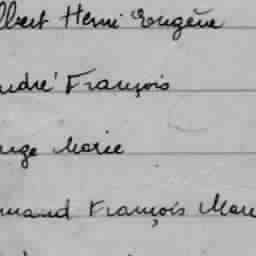 lbert Henri Eugène
ndré François
ange Marie
rmand François Marie